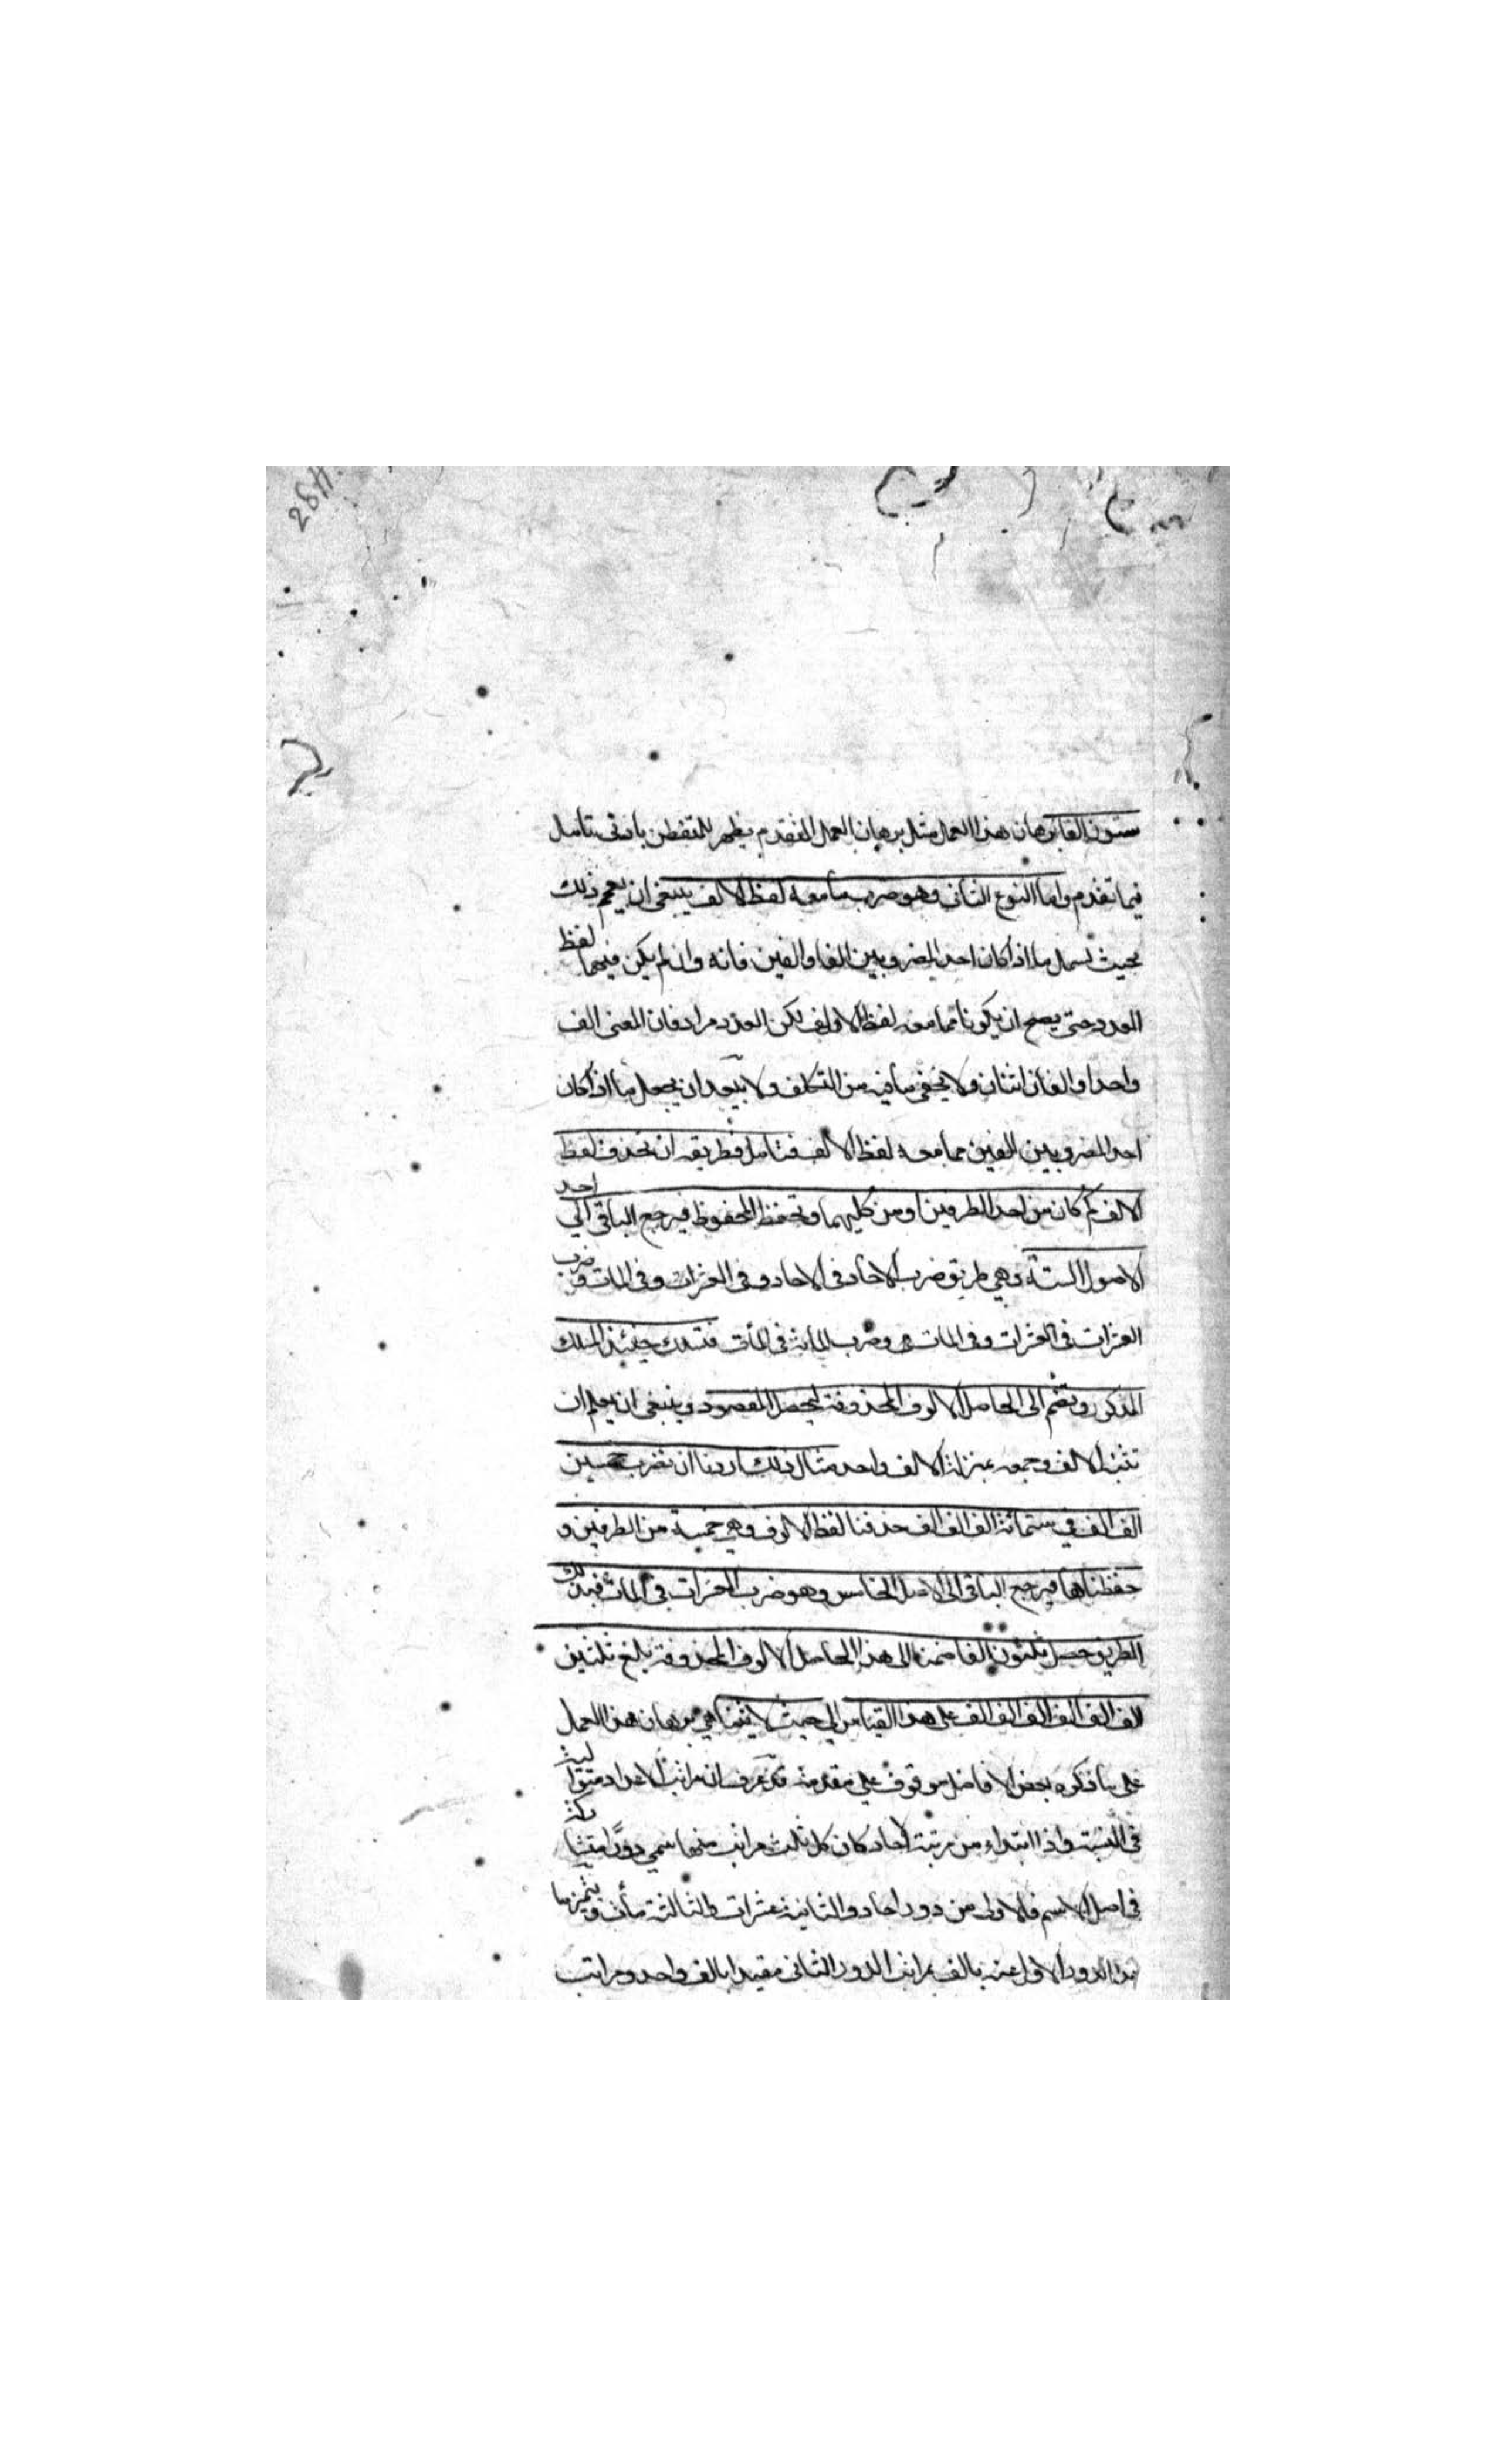 ستون الفا برهان هذا العمل مثل برهان العمل المتقدم يظهر للمتفطن بادنى تامل
فيما تقدم واما النوع الثانى وهو ضرب ما معه لفظ الالف ينبغى ان يعمم ذلك
بحيث يشمل ما اذا كان احد المضروبين الفا والفين فانه وان لم يكن فيهما لفظ
العدد حتى يصح ان يكونا مما معه لفظ الالف لكن العدد مراد فان المعنى الف
واحد او الفان اثنان ولا يخفى ما فيه من التكلف ولا يبعد ان يجعل ما اذا كان
احد المضروبين الفين مما معه لفظ الالف فتامل فطريقه ان تحذف لفظ
الالف كم كان من احد الطرفين او من كليهما وتحفظ المحفوظ فيرجع الباقى الى احد
الاصول الستة وهى طريق ضرب الاحاد فى الاحاد وفى العشرات وفى المات و ضرب
العشرات فى العشرات وفى المات وضرب المات فى المات فتسلك حينئذ المسلك
المذكور وتضم الى الحاصل الالوف المحذوفة ليحصل المقصود وينبغى ان يعلم ان
تثنية الالف وجمعه بمنزلة الالف واحد مثال ذلك اردنا ان نضرب خمسين
الف الف فى ستمائة الف الف الف حذفنا لفظ الالوف وهى خمسة من الطرفين و
حفظناها فيرجع الباقى الى الاصل الخامس وهو ضرب العشرات فى المات فبذلك
الطريق حصل ثلثون الفا ضممنا الى هذا الحاصل الالوف المحذوفة بلغ ثلثين
الف الف الف الف الف الف على هذا القياس الى حيث لا يتناهى برهان هذا العمل
على ما ذكره بعض الافاضل موقوف على مقدمة قد عرف ان مراتب الاعداد متوالية
فى النسبة واذا ابتداء من مرتبة الاحاد كان كل ثلث مراتب منها سمى دورا
فى اصل الاسم فالاولى من دور احاد والثانية عشرات والثالثة مأت
الدور الاول عنه بالف مراتب الدور الثانى مقيدا بالف واحد ومراتب